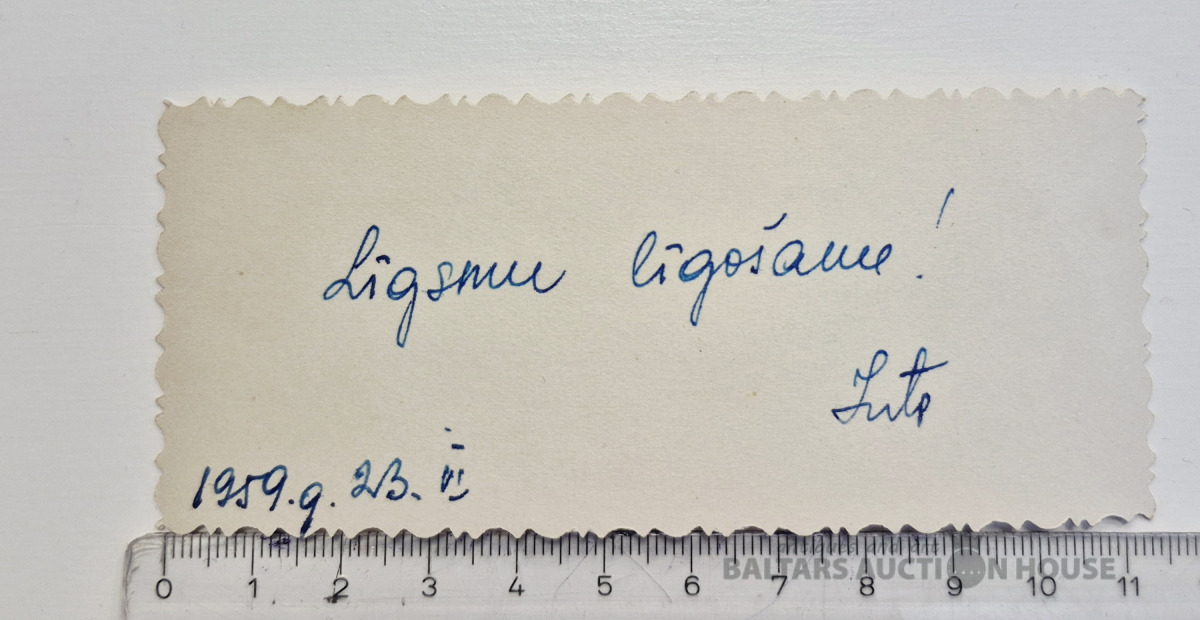 Līgsmu līgošanu!
Juta
1959.g. 23. VI
0 1 2 3 4 5 6 7 8 9 10 11
BALTARS AUCTION HOUSE